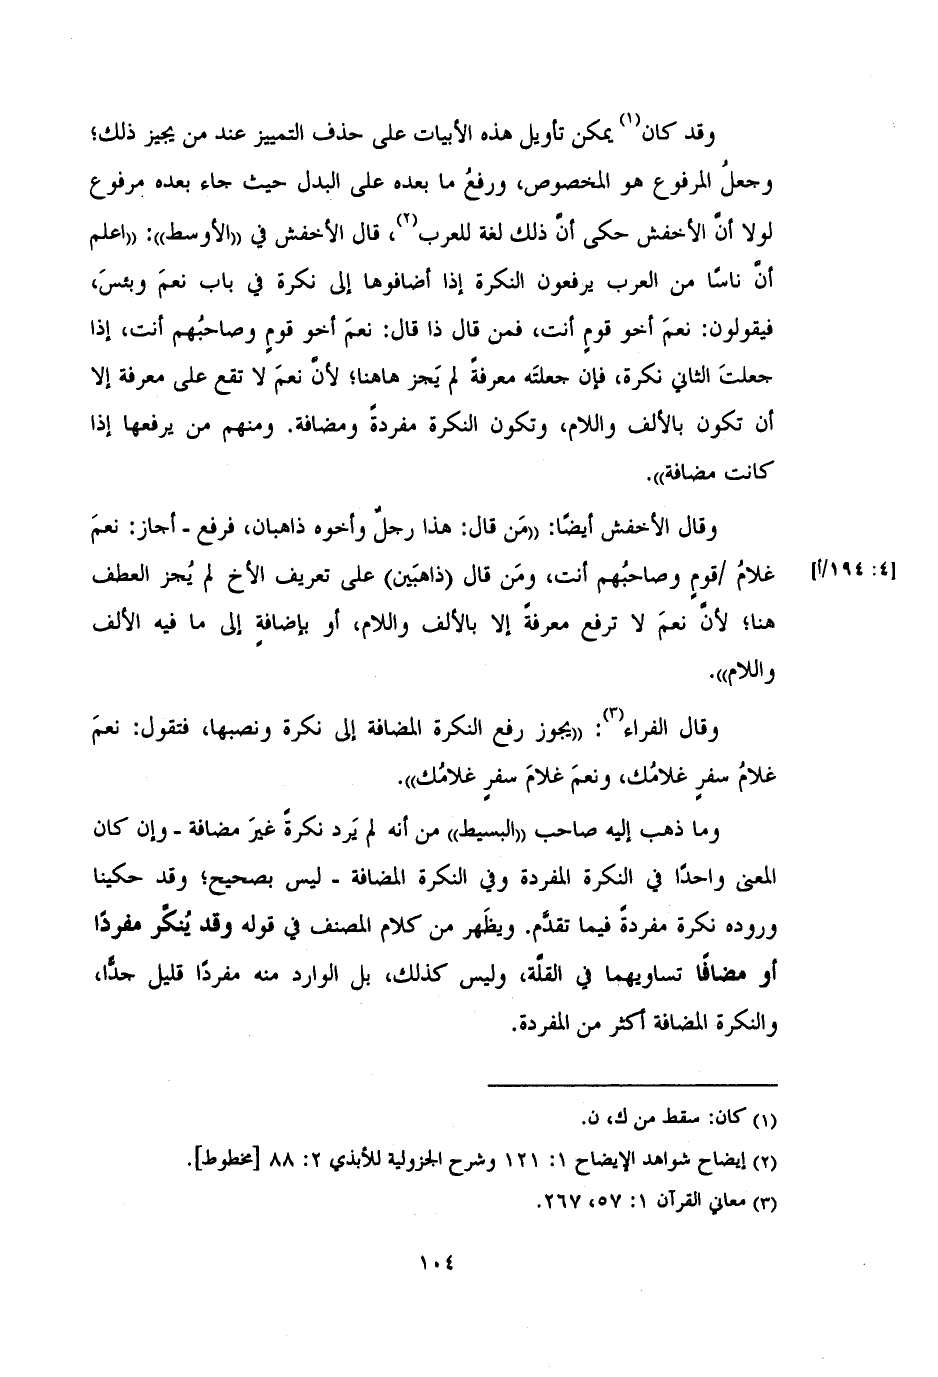 وقد كان(١) يمكن تأويل هذه الأبيات على حذف التمييز عند من يجيز ذلك؛
وجعلُ المرفوع هو المخصوص، ورفعُ ما بعده على البدل حيث جاء بعده مرفوع
لولا أنَّ الأخفش حكى أنَّ ذلك لغة للعرب(٢)، قال الأخفش في ((الأوسط)): ((اعلم
أنَّ ناسًا من العرب يرفعون النكرة إذا أضافوها إلى نكرة في باب نعمَ وبئسَ،
فيقولون: نعمَ أخو قومٍ أنت، فمن قال ذا قال: نعمَ أخو قومٍ وصاحبُهم أنت، إذا
جعلتَ الثاني نكرة، فإن جعلتَه معرفةً لم يَجز هاهنا؛ لأنَّ نعمَ لا تقع على معرفة إلا
أن تكون بالألف واللام، وتكون النكرة مفردةً ومضافة. ومنهم من يرفعها إذا
كانت مضافة)).
وقال الأخفش أيضًا: ((مَن قال: هذا رجلٌ وأخوه ذاهبان، فرفع - أجاز: نعمَ
غلامُ /قومٍ وصاحبُهم أنت، ومَن قال (ذاهبَين) على تعريف الأخ لم يُجز العطف
[٤: ١٩٤/أ]
هنا؛ لأنَّ نعمَ لا ترفع معرفةً إلا بالألف واللام، أو بإضافةٍ إلى ما فيه الألف
واللام)).
وقال الفراء(٣): ((يجوز رفع النكرة المضافة إلى نكرة ونصبها، فتقول: نعمَ
غلامُ سفرٍ غلامُك، ونعمَ غلامَ سفرٍ غلامُك)).
وما ذهب إليه صاحب ((البسيط)) من أنه لم يَرد نكرةً غيرَ مضافة - وإن كان
المعنى واحدًا في النكرة المفردة وفي النكرة المضافة - ليس بصحيح؛ وقد حكينا
وروده نكرة مفردةً فيما تقدَّم. ويظَهر من كلام المصنف في قوله وقد يُنكَّر مفردًا
أو مضافًا تساويهما في القلَّة، وليس كذلك، بل الوارد منه مفردًا قليل جدًّا،
والنكرة المضافة أكثر من المفردة.
(١) كان: سقط من ك، ن.
(٢) إيضاح شواهد الإيضاح ١: ١٢١ وشرح الجزولية للأبذي ٢: ٨٨ [مخطوط].
(٣) معاني القرآن ١: ٥٧، ٢٦٧.
١٠٤